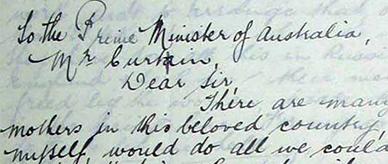 To the Prime Minister of Australia,
Mr Curtain,
Dear Sir,
There are many
mothers in this beloved country
myself, would do all we could